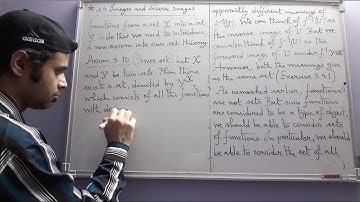 * 3.4 Images and inverse images
functions from a set X into a set
Y. To do this we need to introduce
a new axiom into our set theory:
Axiom 3.10 (Power set). Let X
and Y be two sets. Then there
exists a set, denoted by Y^X,
which consists of all the functions
with do
apparently different meaning of
f⁻¹(U). We can think of f⁻¹(U) as
the inverse image of U. But we
can also think of f⁻¹(U) as the
forward image of U under f⁻¹: Y→X.
However, both the meanings give
us the same set (Exercise 3.4.1).
As remarked earlier, functions
are not sets. But since functions
are considered to be a type of object,
we should be able to consider sets
of functions. In particular, we should
be able to consider the set of all